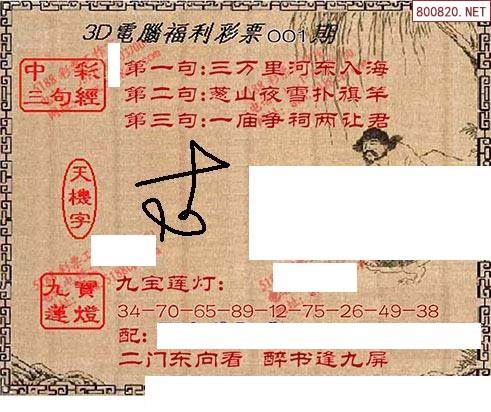 800820.NET
3D電腦福利彩票001期
中彩
三句經
第一句:三万里河东入海
第二句:葱山夜雪扑旗竿
第三句:一庙争祠两让君
天機字
九寶蓮燈
九宝莲灯:
34-70-65-89-12-75-26-49-38
配:
二门东向看 醉书逢九屏